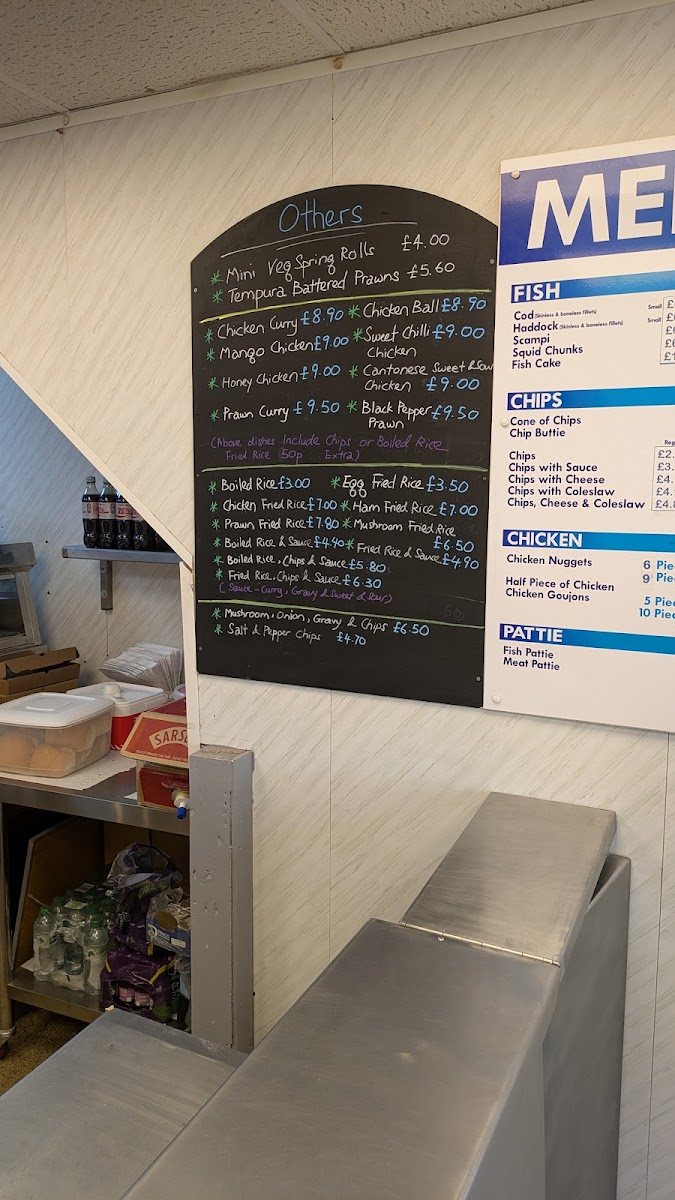 Others
* Mini Veg Spring Rolls £4.00
* Tempura Battered Prawns £5.60
* Chicken Curry £8.90 * Chicken Ball £8.90
* Mango Chicken £9.00 * Sweet Chilli Chicken £9.00
* Honey Chicken £9.00 * Cantonese Sweet & Sour Chicken £9.00
* Prawn Curry £9.50 * Black Pepper Prawn £9.50
(Above dishes Include Chips or Boiled Rice
Fried Rice 50p Extra)
* Boiled Rice £3.00 * Egg Fried Rice £3.50
* Chicken Fried Rice £7.00 * Ham Fried Rice £7.00
* Prawn Fried Rice £7.80 * Mushroom Fried Rice £6.50
* Boiled Rice & Sauce £4.40 * Fried Rice & Sauce £4.90
* Boiled Rice, Chips & Sauce £5.80
* Fried Rice, Chips & Sauce £6.30
(Sauce - Curry, Gravy & Sweet & Sour)
* Mushroom, Onion, Gravy & Chips £6.50
* Salt & Pepper Chips £4.70
ME
FISH
Cod (Skinless & boneless fillets) Small
Haddock (Skinless & boneless fillets) Small
Scampi
Squid Chunks
Fish Cake
CHIPS
Cone of Chips
Chip Buttie
Chips
Chips with Sauce
Chips with Cheese
Chips with Coleslaw
Chips, Cheese & Coleslaw
CHICKEN
Chicken Nuggets 6 Pie
9 Pie
Half Piece of Chicken
Chicken Goujons 5 Pie
10 Pie
PATTIE
Fish Pattie
Meat Pattie
SARS